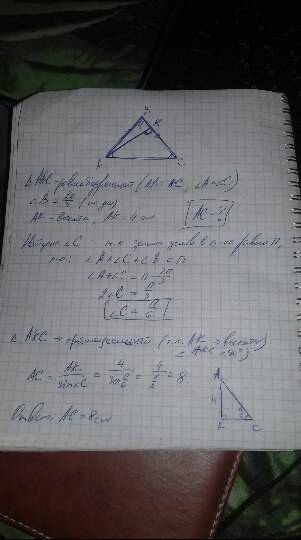 B
K
A
C
Δ ABC - равнобедренный (AB = AC, ∠A = ∠C)
∠B = 2π/3 (по усл)
AK - высота, AK = 4 см
AC - ?
Найдем ∠C т.к сумма углов в п-ке равна П,
то: ∠A + ∠C + ∠B = П
∠A + ∠C = П - 2π/3
2∠C = П/3
∠C = П/6
Δ AKC - прямоугольный (т.к. AK - высота)
∠ AKC = 90°)
AC = AK/sin∠C = 4/sin П/6 = 4/½ = 8
A
4
K
C
Ответ: AC = 8 см